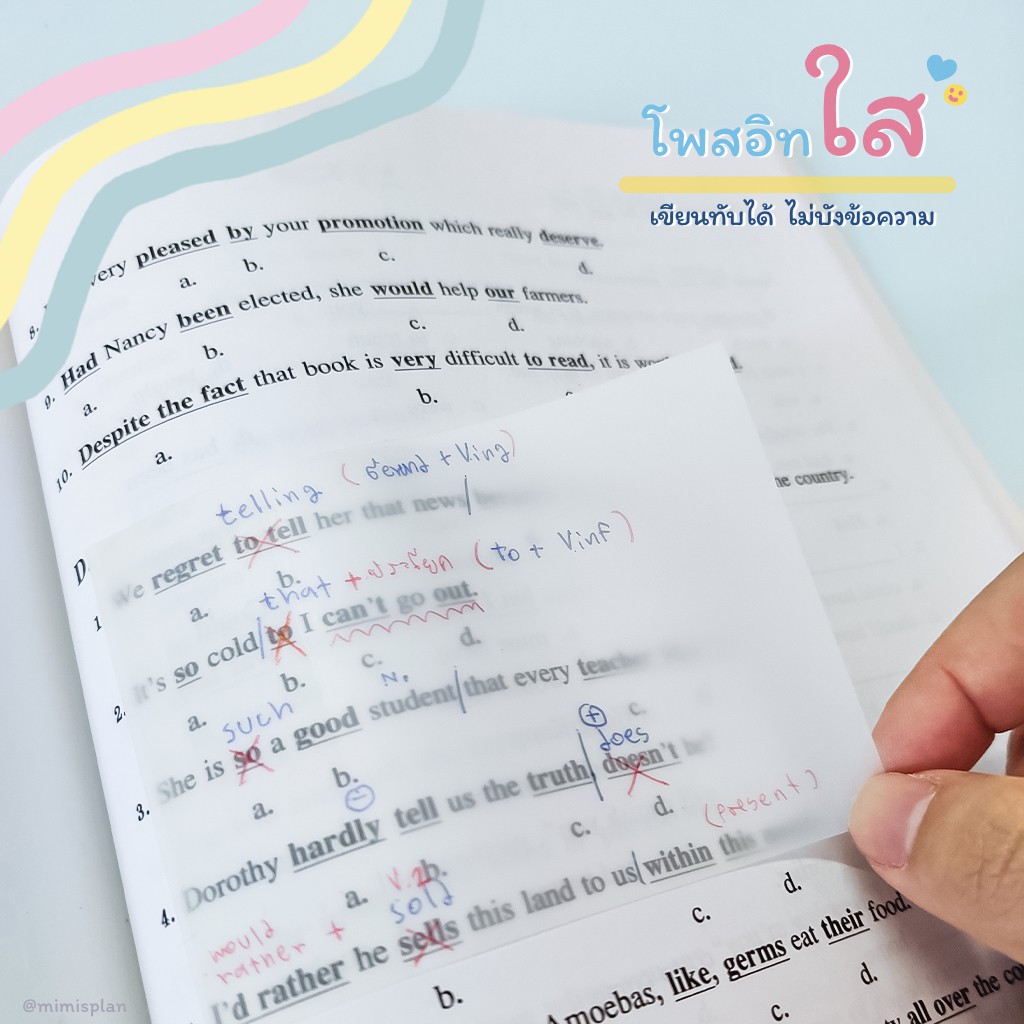 โพสอิทใส
เขียนทับได้ ไม่บังข้อความ
8. very pleased by your promotion which really deserve.
a. b. c. d.
9. Had Nancy been elected, she would help our farmers.
a. b. c. d.
10. Despite the fact that book is very difficult to read, it is
a. b.
telling ( + Ving)
D.
he country.
1 We regret to tell her that news
a. b.
that + ประโยค (to + Vinf)
2. It's so cold to I can't go out.
a. b. c. d.
such N.
3. She is so a good student that every
a. b. c.
does
4. Dorothy hardly tell us the truth, doesn't
a. b. c. d.
would rather + V.2 sold (present)
I'd rather he sells this land to us within this
b. c. d.
Amoebas, like, germs eat their food.
c. d.
all over the
@mimisplan